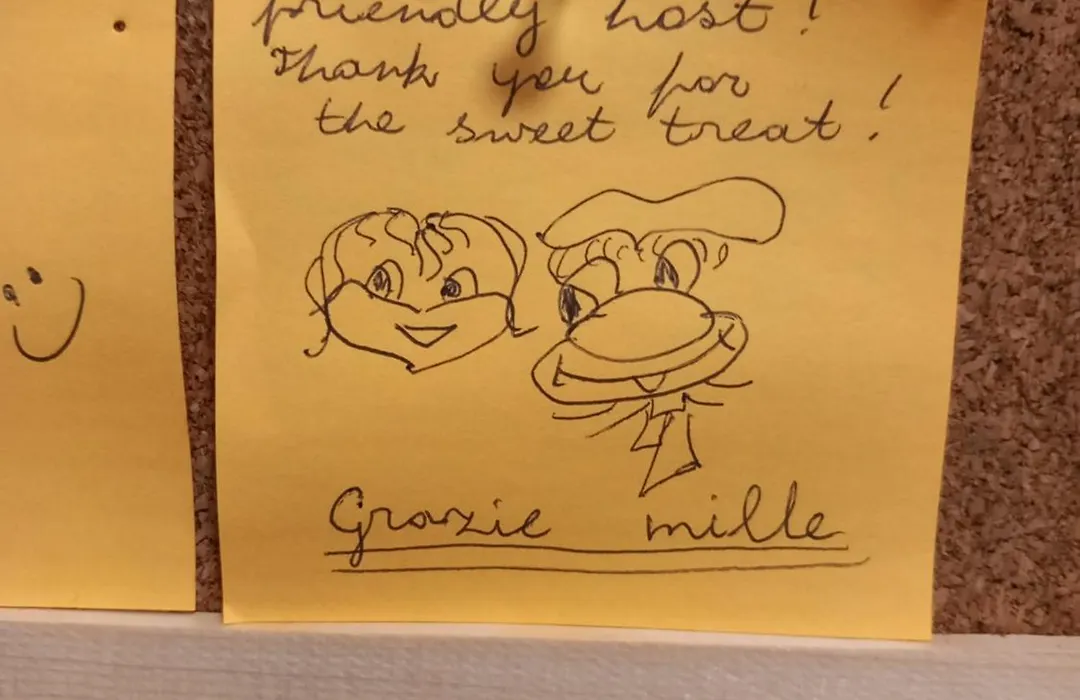 friendly host!
Thank you for
the sweet treat!
Grazie mille